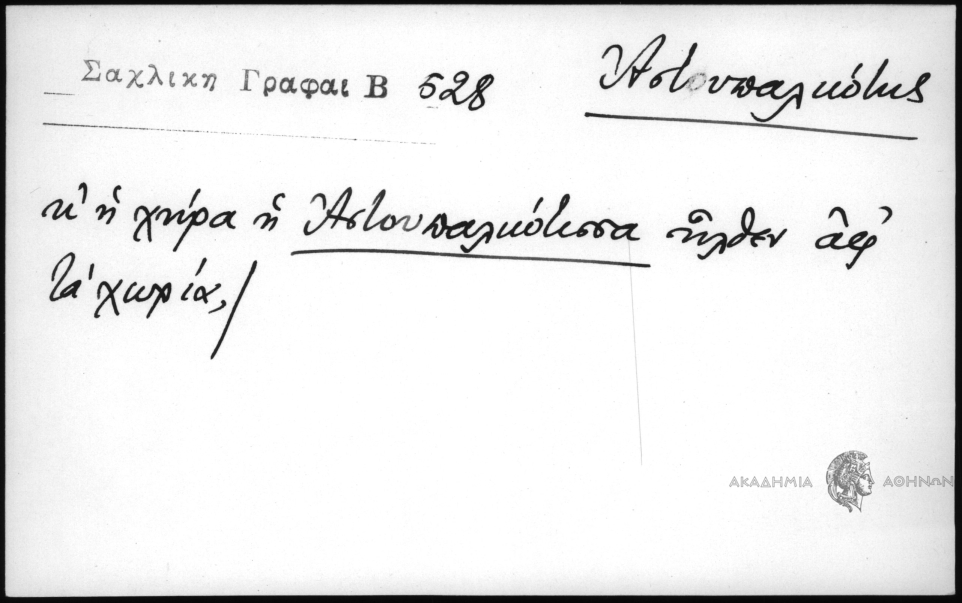 Σαχλικη Γραφαι Β 528 Ἀστουπαλκότης
κ' ἡ χήρα ἡ Ἀστουπαλκότισσα ἦλθεν ἀφ'
τὰ χωρία,/
ΑΚΑΔΗΜΙΑ ΑΘΗΝΩΝ